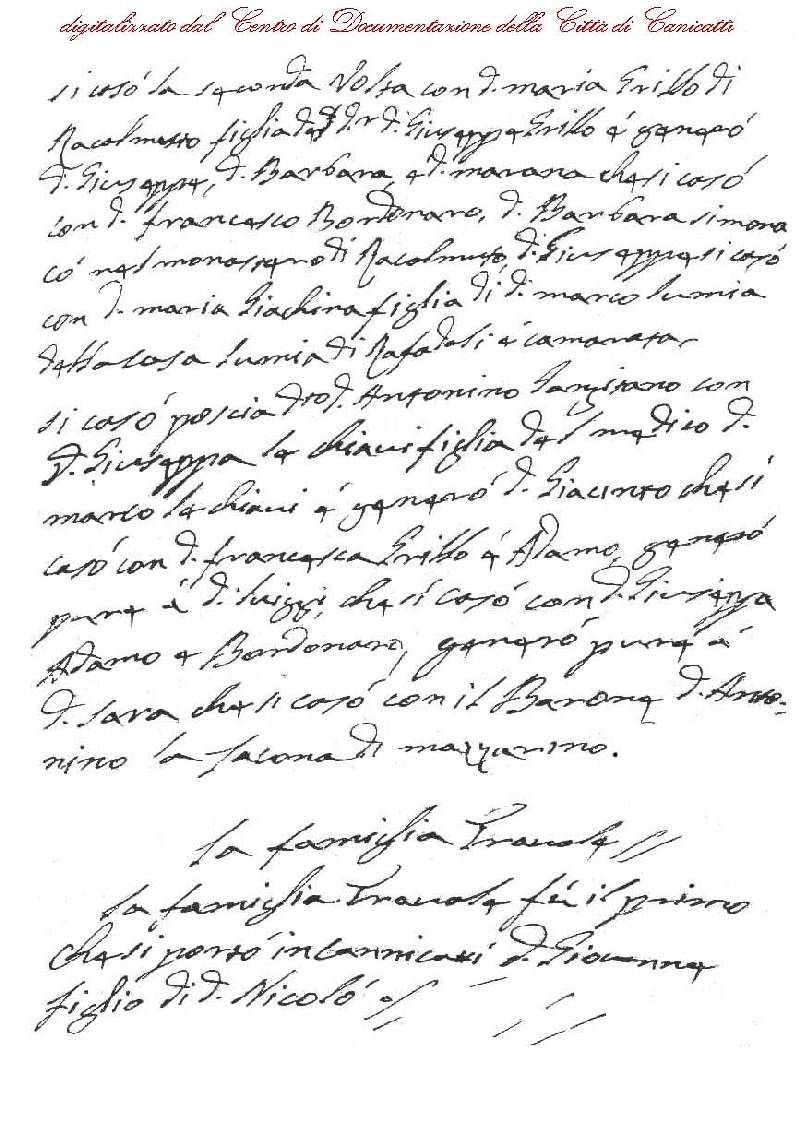 digitalizzato dal Centro di Documentazione della Città di Canicattì
si casó la seconda Volta con d. maria Grillo di
Racalmuto figlia del dr d. Giuseppe Grillo é generó
d. Giuseppe, d. Barbara, e d. marana che si casó
con d. francesco Bordonaro, d. Barbara si mona
có nel monastero di Racalmuto, d. Giuseppe si casó
con d. maria Giachina figlia di d. marco lumia
della Casa lumia di Rafadali é camarata
si casó poscia dto d. Antonino con
d. Giuseppa la chiavi figlia del medico d.
marco la chiavi é generó d. Giacinto che si
casó con d. francesca Grillo é Adamo, generó
pure á d. luiggi, che si casó con d. Giuseppa
Adamo e Bordonaro, generó pure á
d. sara che si casó con il Barone d. Anto-
nino la iacona di mazzarino.
la famiglia Travale //
la famiglia Travale fú il primo
che si portó in Cannicatti d. Giovanne
figlio di d. Nicoló